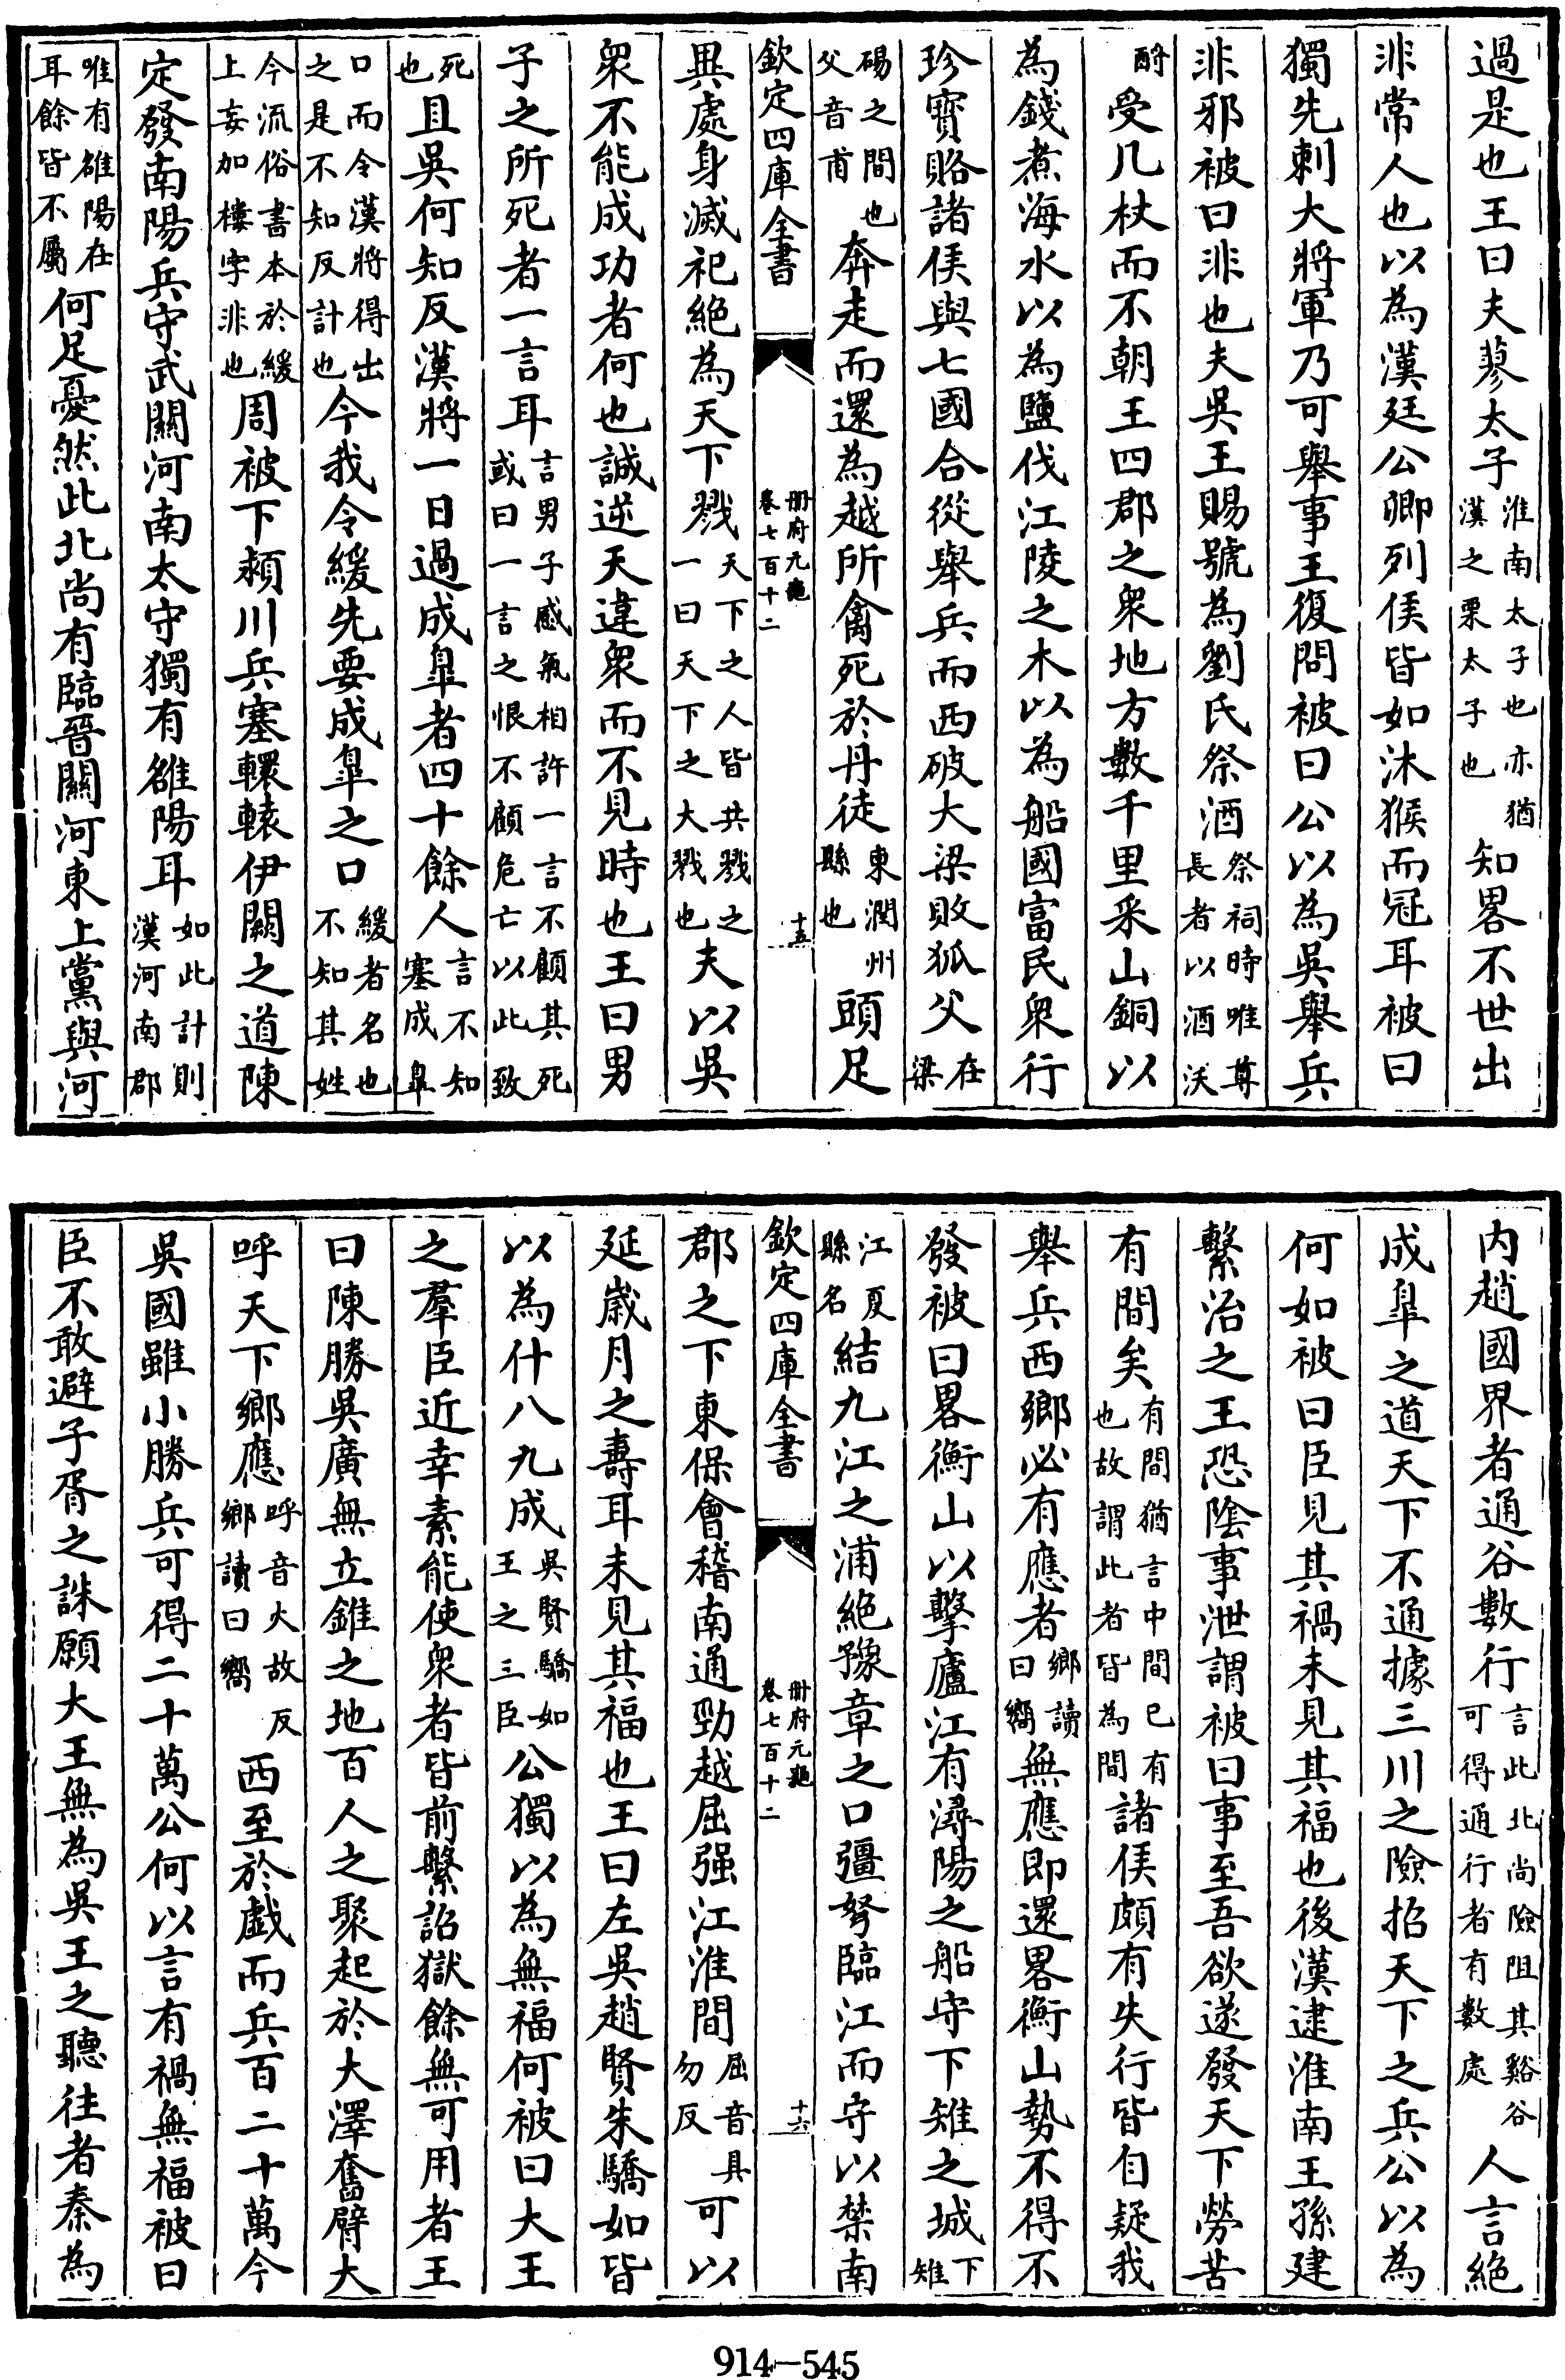 過是也王曰夫蓼太子淮南太子也亦猶漢之栗太子也知畧不世出
非常人也以為漢廷公卿列侯皆如沐猴而冠耳被曰
獨先刺大將軍乃可舉事王復問被曰公以為吳舉兵
非邪被曰非也夫吳王賜號為劉氏祭酒祭祠時唯尊長者以酒沃
酹受几杖而不朝王四郡之衆地方數千里采山銅以
為錢煮海水以為鹽伐江陵之木以為船國富民衆行
珍寶賂諸侯與七國合從舉兵而西破大梁敗狐父在梁
碭之間也父音甫奔走而還為越所禽死於丹徒東潤州縣也頭足
欽定四庫全書 冊府元龜卷七百十二 十五
異處身滅祀絶為天下戮天下之人皆共戮之一曰天下之大戮也夫以吳
衆不能成功者何也誠逆天違衆而不見時也王曰男
子之所死者一言耳言男子感氣相許一言不顧其死或曰一言之恨不顧危亡以此致
死也且吳何知反漢將一日過成臯者四十餘人言不知塞成臯
口而令漢將得出之是不知反計也今我令緩先要成臯之口緩者名也不知其姓
今流俗書本於緩上妄加樓字非也周被下潁川兵塞轘轅伊闕之道陳
定發南陽兵守武關河南太守獨有雒陽耳如此計則漢河南郡
唯有雒陽在耳餘皆不屬何足憂然此北尚有臨晉關河東上黨與河
内趙國界者通谷數行言此北尚險阻其谿谷可得通行者有數處人言絶
成臯之道天下不通據三川之險招天下之兵公以為
何如被曰臣見其禍未見其福也後漢逮淮南王孫建
繫治之王恐陰事泄謂被曰事至吾欲遂發天下勞苦
有間矣有間猶言中間已有也故謂此者皆為間諸侯頗有失行皆自疑我
舉兵西鄉必有應者鄉讀曰嚮無應即還畧衡山勢不得不
發被曰畧衡山以擊廬江有潯陽之船守下雉之城下雉
江夏縣名結九江之浦絶豫章之口彊弩臨江而守以禁南
欽定四庫全書 冊府元龜卷七百十二 十六
郡之下東保會稽南通勁越屈强江淮間屈音具勿反可以
延歲月之壽耳未見其福也王曰左吳趙賢朱驕如皆
以為什八九成吳賢驕如王之三臣公獨以為無福何被曰大王
之羣臣近幸素能使衆者皆前繫詔獄餘無可用者王
曰陳勝吳廣無立錐之地百人之聚起於大澤奮臂大
呼天下鄉應呼音火故反鄉讀曰嚮西至於戯而兵百二十萬今
吳國雖小勝兵可得二十萬公何以言有禍無福被曰
臣不敢避子胥之誅願大王無為吳王之聽往者秦為
914—545